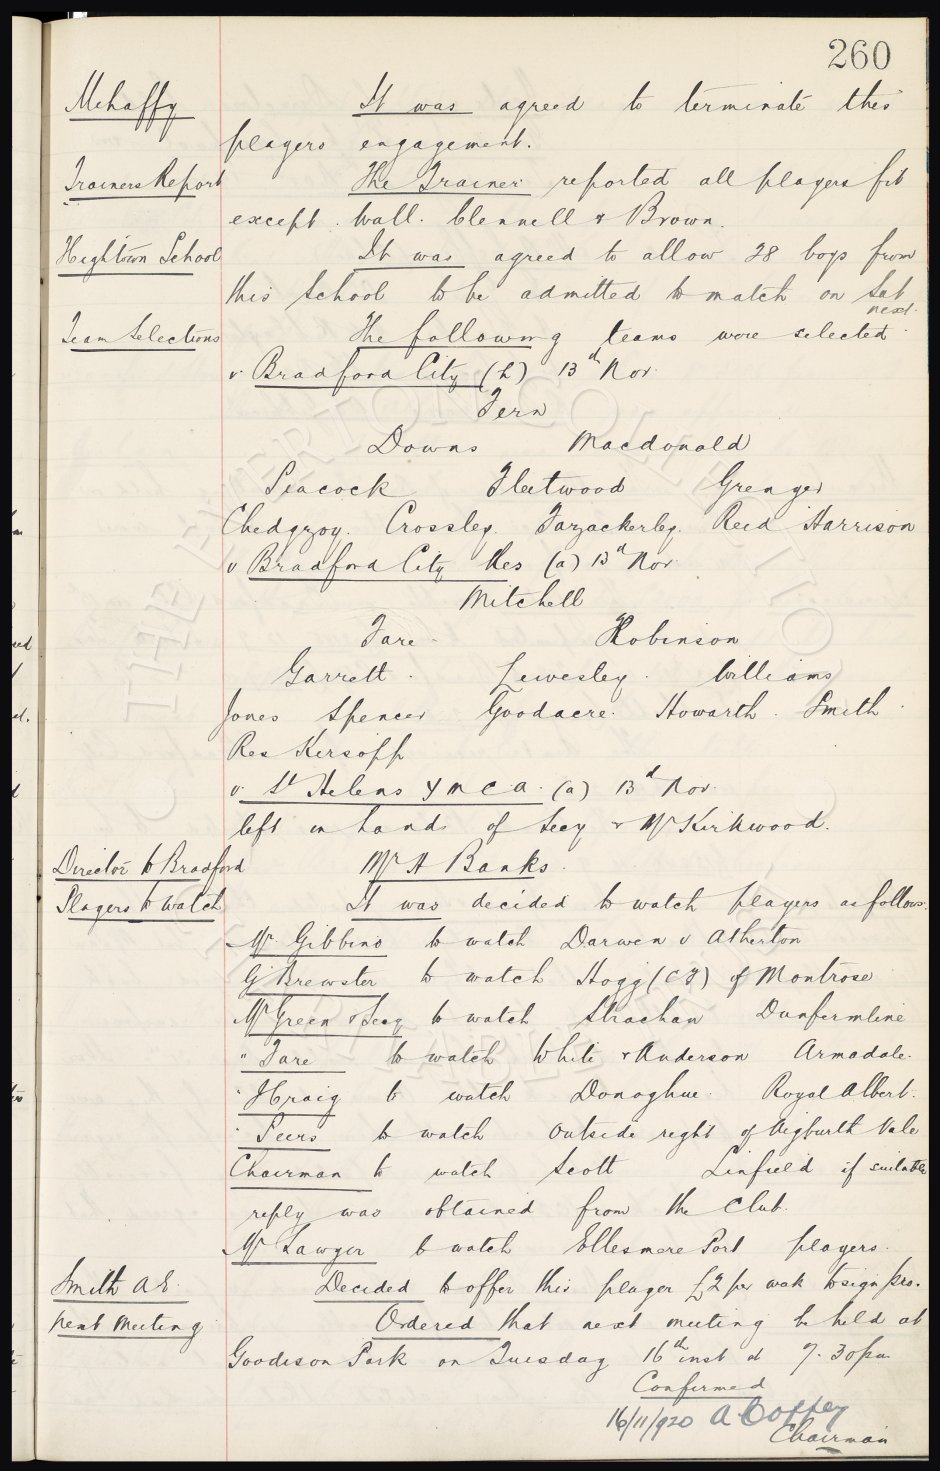 260
Mehaffy It was agreed to terminate this
players engagement.
Trainers Report The Trainer reported all players fit
except Wall. Clennell & Brown.
Hightown School It was agreed to allow 28 boys from
this School to be admitted to match on Sat
next.
Team Selections The following teams were selected
v Bradford City (h) 13th Nov.
Fern
Downs Macdonald
Peacock Fleetwood Grenyer
Chedgzoy. Crossley. Tarzackerley. Reid Harrison
v Bradford City Res (a) 13th Nov
Mitchell
Tare Robinson
Garrett. Lewesley. Williams
Jones Spencer Goodacre. Howarth. Smith
Res Kersopp
v. St Helens Y M C A. (a) 13th Nov.
left in hands of Secy & Mr Kirkwood.
Director to Bradford Mr H Banks.
Players to watch It was decided to watch players as follows.
Mr Gibbins to watch Darwen v Atherton
G Brewster to watch Hogg (C F) of Montrose
Mr Green & Secy to watch Strachan Dunfermline
" Fare to watch White & Anderson Armadale.
" Haig to watch Donoghue. Royal Albert.
" Peers to watch outside right of Aigburth Vale
Chairman to watch Scott Linfield if suitable
reply was obtained from the Club.
Mr Sawyer to watch Ellesmere Port players.
Smith A E. Decided to offer this player £2 per week to sign pro.
next meeting Ordered that next meeting be held at
Goodison Park on Tuesday 16th inst at 7.30pm
Confirmed
16/11/920 A Coffey
Chairman